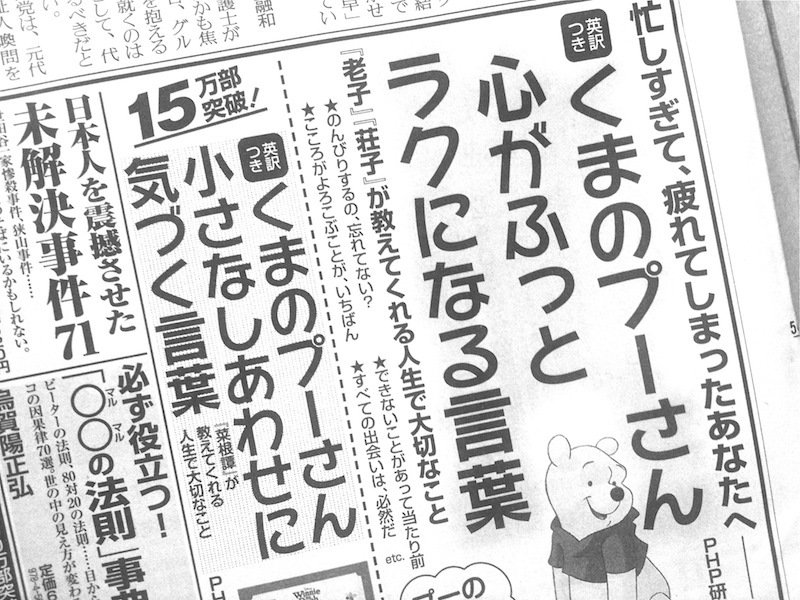 忙しすぎて、疲れてしまったあなたへ
英訳つき
くまのプーさん
心がふっと
ラクになる言葉
『老子』『荘子』が教えてくれる人生で大切なこと
★のんびりするの、忘れてない?
★こころがよろこぶことが、いちばん
★できないことがあって当たり前
★すべての出会いは、必然だ
etc.
プーの
PHP研
15万部突破!
英訳つき
くまのプーさん
小さなしあわせに
気づく言葉
『菜根譚』が
教えてくれる
人生で大切なこと
PH
Winnie
日本人を震撼させた
未解決事件71
家惨殺事件、狭山事件……
にいるかもしれない。
必ず役立つ!
「○○の法則」事典
マル マル
ピーターの法則、80対20の法則……目か
コの因果律70選。世の中の見え方が変わ
定価6
烏賀陽正弘
万部突
護士が
を抱える
就くのは
して、代
べきだと
党は、元代
人喚問を
融和
、グル
かも焦
5